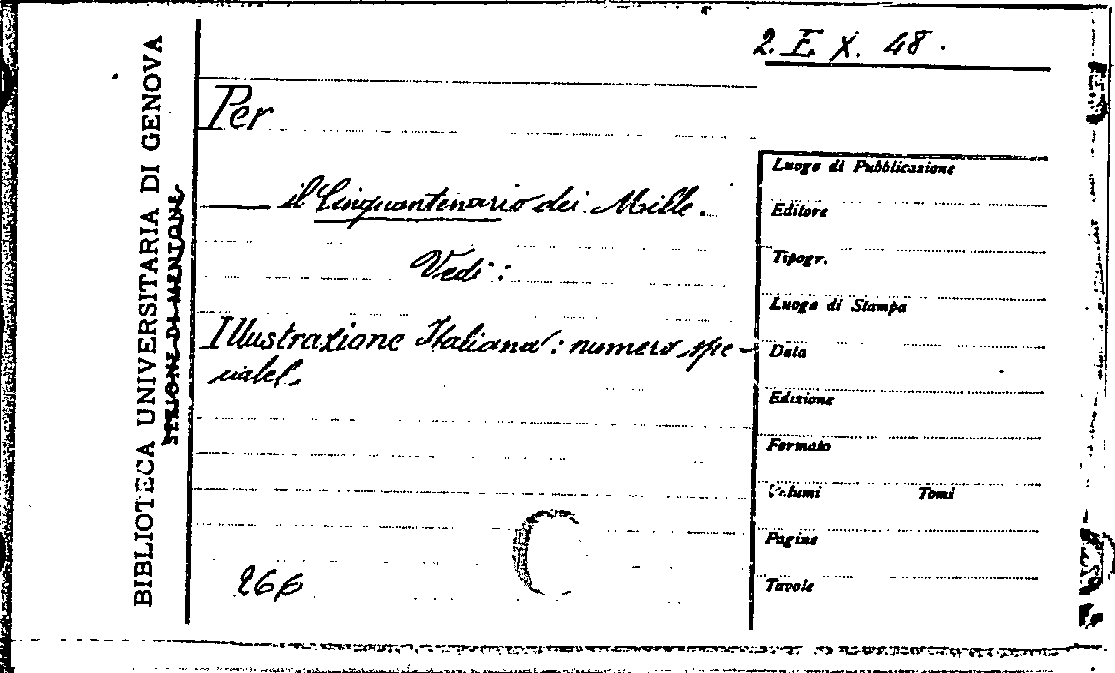 2. E X. 48.
Per
il Cinquantenario dei Mille.
Vedi:
Illustrazione Italiana: numero spe-
ciale.
266
BIBLIOTECA UNIVERSITARIA DI GENOVA
Luogo di Pubblicazione
Editore
Tipogr.
Luogo di Stampa
Data
Edizione
Formato
Volumi Tomi
Pagine
Tavole